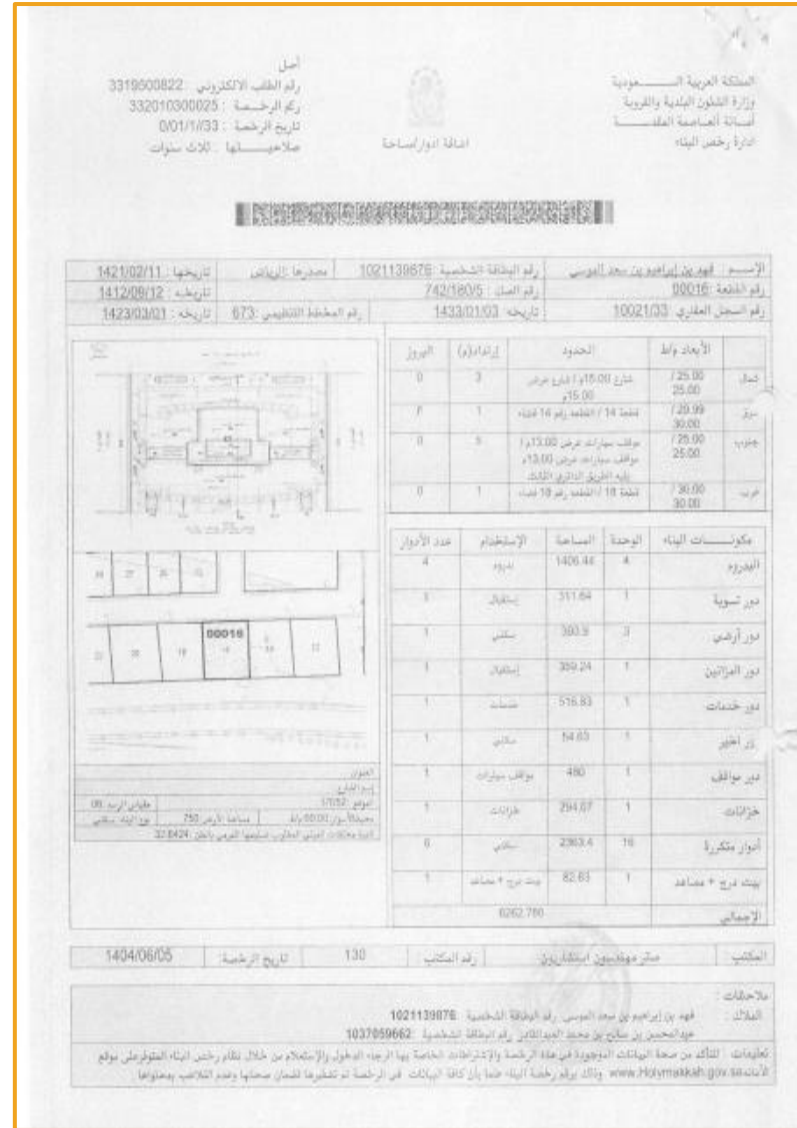 المملكة العربية الســـعودية
وزارة الشئون البلدية والقروية
أمـــانة العـــاصمة المقدســـة
ادارة رخص البناء
اضافة ادوار/مساحة
أصل
رقم الطلب الالكتروني : 3319500822
رقم الرخـــصة : 332010300025
تاريخ الرخصة : 0/01/1/33
صلاحيـــــتها : ثلاث سنوات
الإســـم : فهد بن إبراهيم بن سعد الموسى رقم البطاقة الشخصية :1021139876 مصدرها :الرياض تاريخها : 1421/02/11
رقم القطعة :00016 رقم الصك : 742/180/5 تاريخه : 1412/09/12
رقم السجل العقاري :10021/33 تاريخه :1433/01/03 رقم المخطط التنظيمي :673 تاريخه : 1423/03/01
الأبعاد و/ط الحدود إرتداد(م) البروز
شمال 25.00 / 25.00 شارع 15.00م / شارع عرض 15.00م 3 0
شرق 29.99 / 30.00 قطعة 14 / القطعة رقم 14 فضاء 1
جنوب 25.00 / 25.00 مواقف سيارات عرض 13.00م / مواقف سيارات عرض 13.00م يليه الطريق الدائري الثالث 5 0
غرب 30.00 / 30.00 قطعة 18 / القطعة رقم 18 فضاء 1 0
مكونـــــات البناء الوحدة المساحة الإستخدام عدد الأدوار
البدروم 4 1406.44 بدروم 4
دور تسوية 1 311.64 إستقبال 1
دور أرضي 3 393.9 سكني 1
دور الميزانين 1 359.24 إستقبال 1
دور خدمات 1 516.83 خدمات 1
دور اخير 1 54.63 سكني 1
دور مواقف 1 480 مواقف سيارات 1
خزانات 1 294.07 خزانات 1
أدوار متكررة 16 2363.4 سكني 6
بيت درج + مصاعد 1 82.63 بيت درج + مصاعد 1
الإجمالي 6262.780
00016
العنوان
إسم الشارع
مساحة الأرض 750 نوع البناء سكني
المكتب : ستر مهندسون استشاريون رقم المكتب : 130 تاريخ الرخصة: 1404/06/05
ملاحظات :
الملاك : فهد بن إبراهيم بن سعد الموسى رقم البطاقة الشخصية :1021139876
عبدالمحسن بن صالح بن محمد العبدالقادر رقم البطاقة الشخصية :1037059662
تعليمات : للتأكد من صحة البيانات الموجودة في هذة الرخصة والإشتراطات الخاصة بها الرجاء الدخول والإستعلام من خلال نظام رخص البناء المتوفر على موقع
الأمانة www.Holymakkah.gov.sa وذلك برقم رخصة البناء علما بأن كافة البيانات في الرخصة تم تشفيرها لضمان صحتها وعدم التلاعب بمحتواها